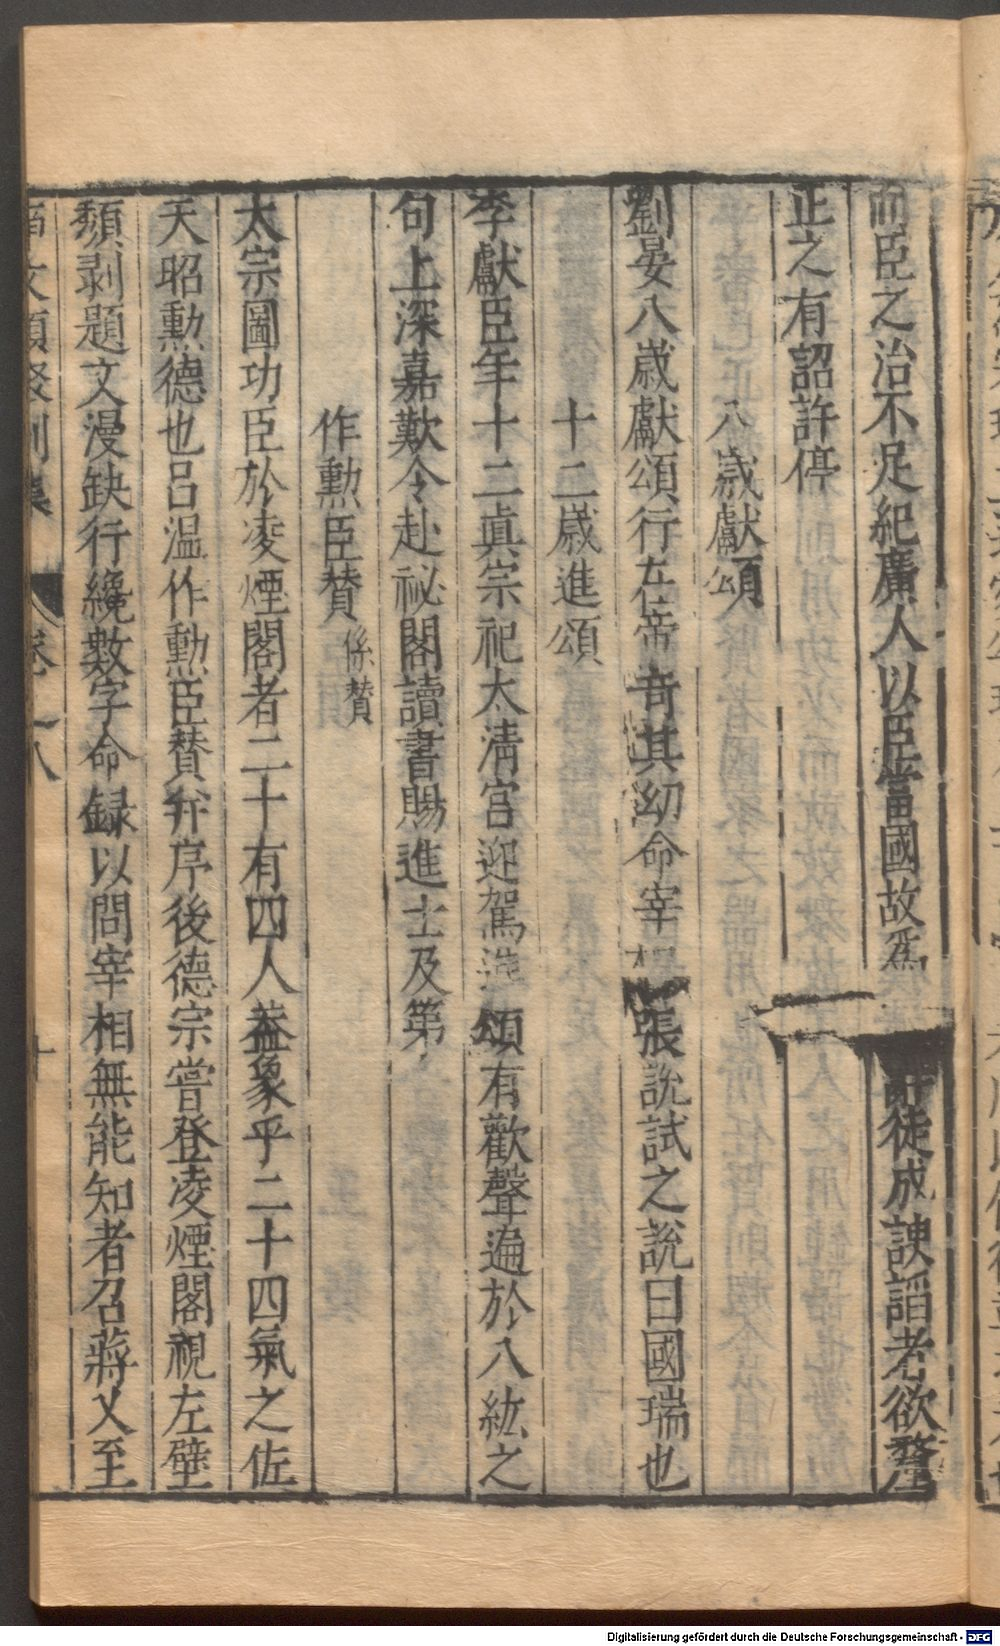 而臣之治不足紀廣人以臣當國故爲 徒成諛諂者欲釐
正之有詔許停
八歲獻頌
劉晏八歲獻頌行在帝奇其幼命宰相張說試之說曰國瑞也
十二歲進頌
李獻臣年十二眞宗祀太淸宮迎駕進頌有歡聲遍於八紘之
句上深嘉歎令赴祕閣讀書賜進士及第
作勲臣賛 係賛
太宗圖功臣於凌煙閣者二十有四人葢象乎二十四氣之佐
天昭勲德也呂温作勲臣賛幷序後德宗嘗登凌煙閣視左壁
頽剥題文漫缺行纔數字命録以問宰相無能知者召蔣乂至
卷之八
十
Digitalisierung gefördert durch die Deutsche Forschungsgemeinschaft - DFG